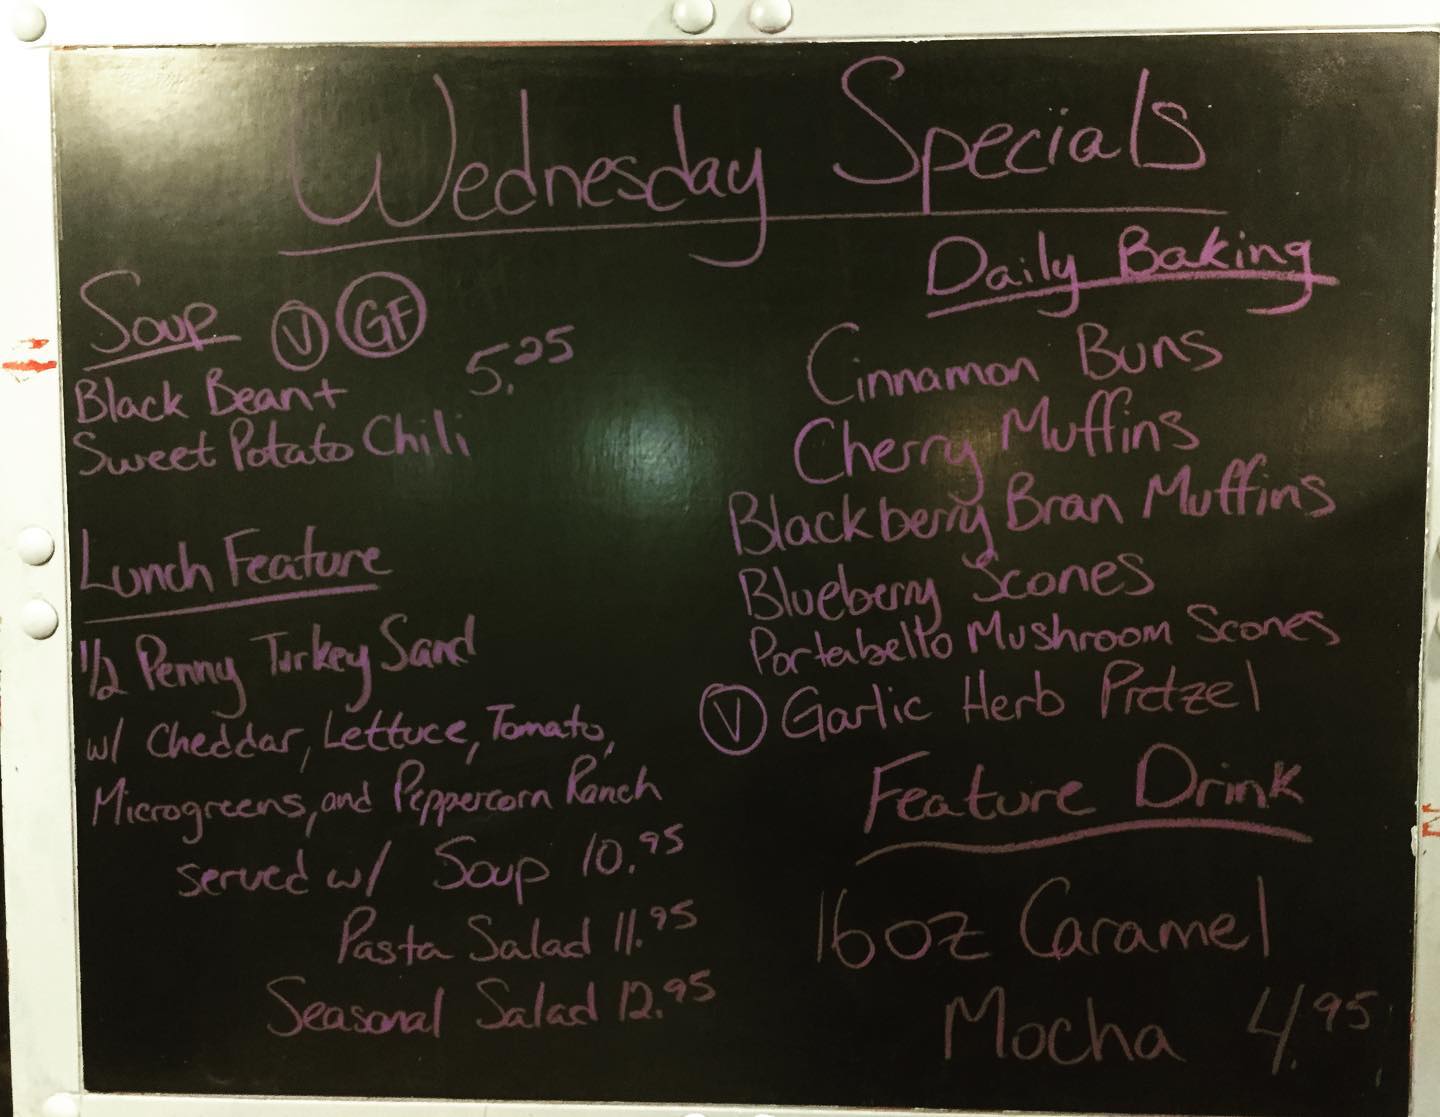 Wednesday Specials
Soup V GF
Black Bean + 5.25
Sweet Potato Chili
Lunch Feature
1/2 Penny Turkey Sand
w/ Cheddar, Lettuce, Tomato,
Microgreens, and Peppercorn Ranch
served w/ Soup 10.95
Pasta Salad 11.95
Seasonal Salad 12.95
Daily Baking
Cinnamon Buns
Cherry Muffins
Blackberry Bran Muffins
Blueberry Scones
Portabello Mushroom Scones
V Garlic Herb Pretzel
Feature Drink
16oz Caramel
Mocha 4.95